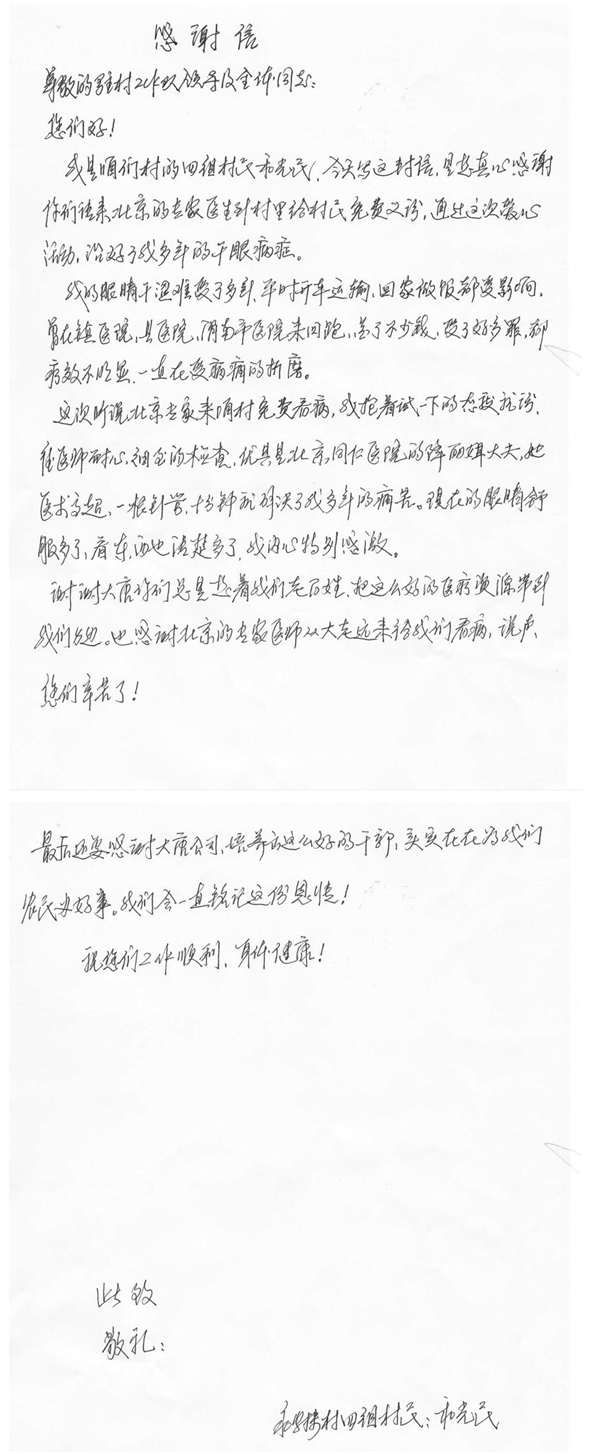 感谢信
尊敬的驻村工作队领导及全体同志:
您们好!
我是咱们村的四组村民和光民,今天写这封信,是想真心感谢
你们请来北京的专家医生到村里给村民免费义诊,通过这次爱心
活动,治好了我多年的干眼病症。
我的眼睛干涩难受了多年,平时开车运输,回家做饭都受影响,
曾在镇医院,县医院,渭南市医院来回跑,花了不少钱,受了好多罪,却
疗效不明显,一直在受病痛的折磨。
这次听说北京专家来咱村免费看病,我抱着试一下的态度就诊,
医师耐心,细致的检查,尤其是北京同仁医院的陈丽娟大夫,她
医术高超,一根针管,十分钟就解决了我多年的病苦。现在的眼睛舒
服多了,看东西也清楚多了,我内心特别感激。
谢谢大唐你们总是想着我们老百姓,把这么好的医疗资源带到
我们身边。也感谢北京的专家医师从大老远来给我们看病,说声,
您们辛苦了!
最后还要感谢大唐公司,培养出这么好的干部,实实在在为我们
农民办好事。我们会一直铭记这份恩情!
祝您们工作顺利,身体健康!
此致
敬礼:
村四组村民:和光民